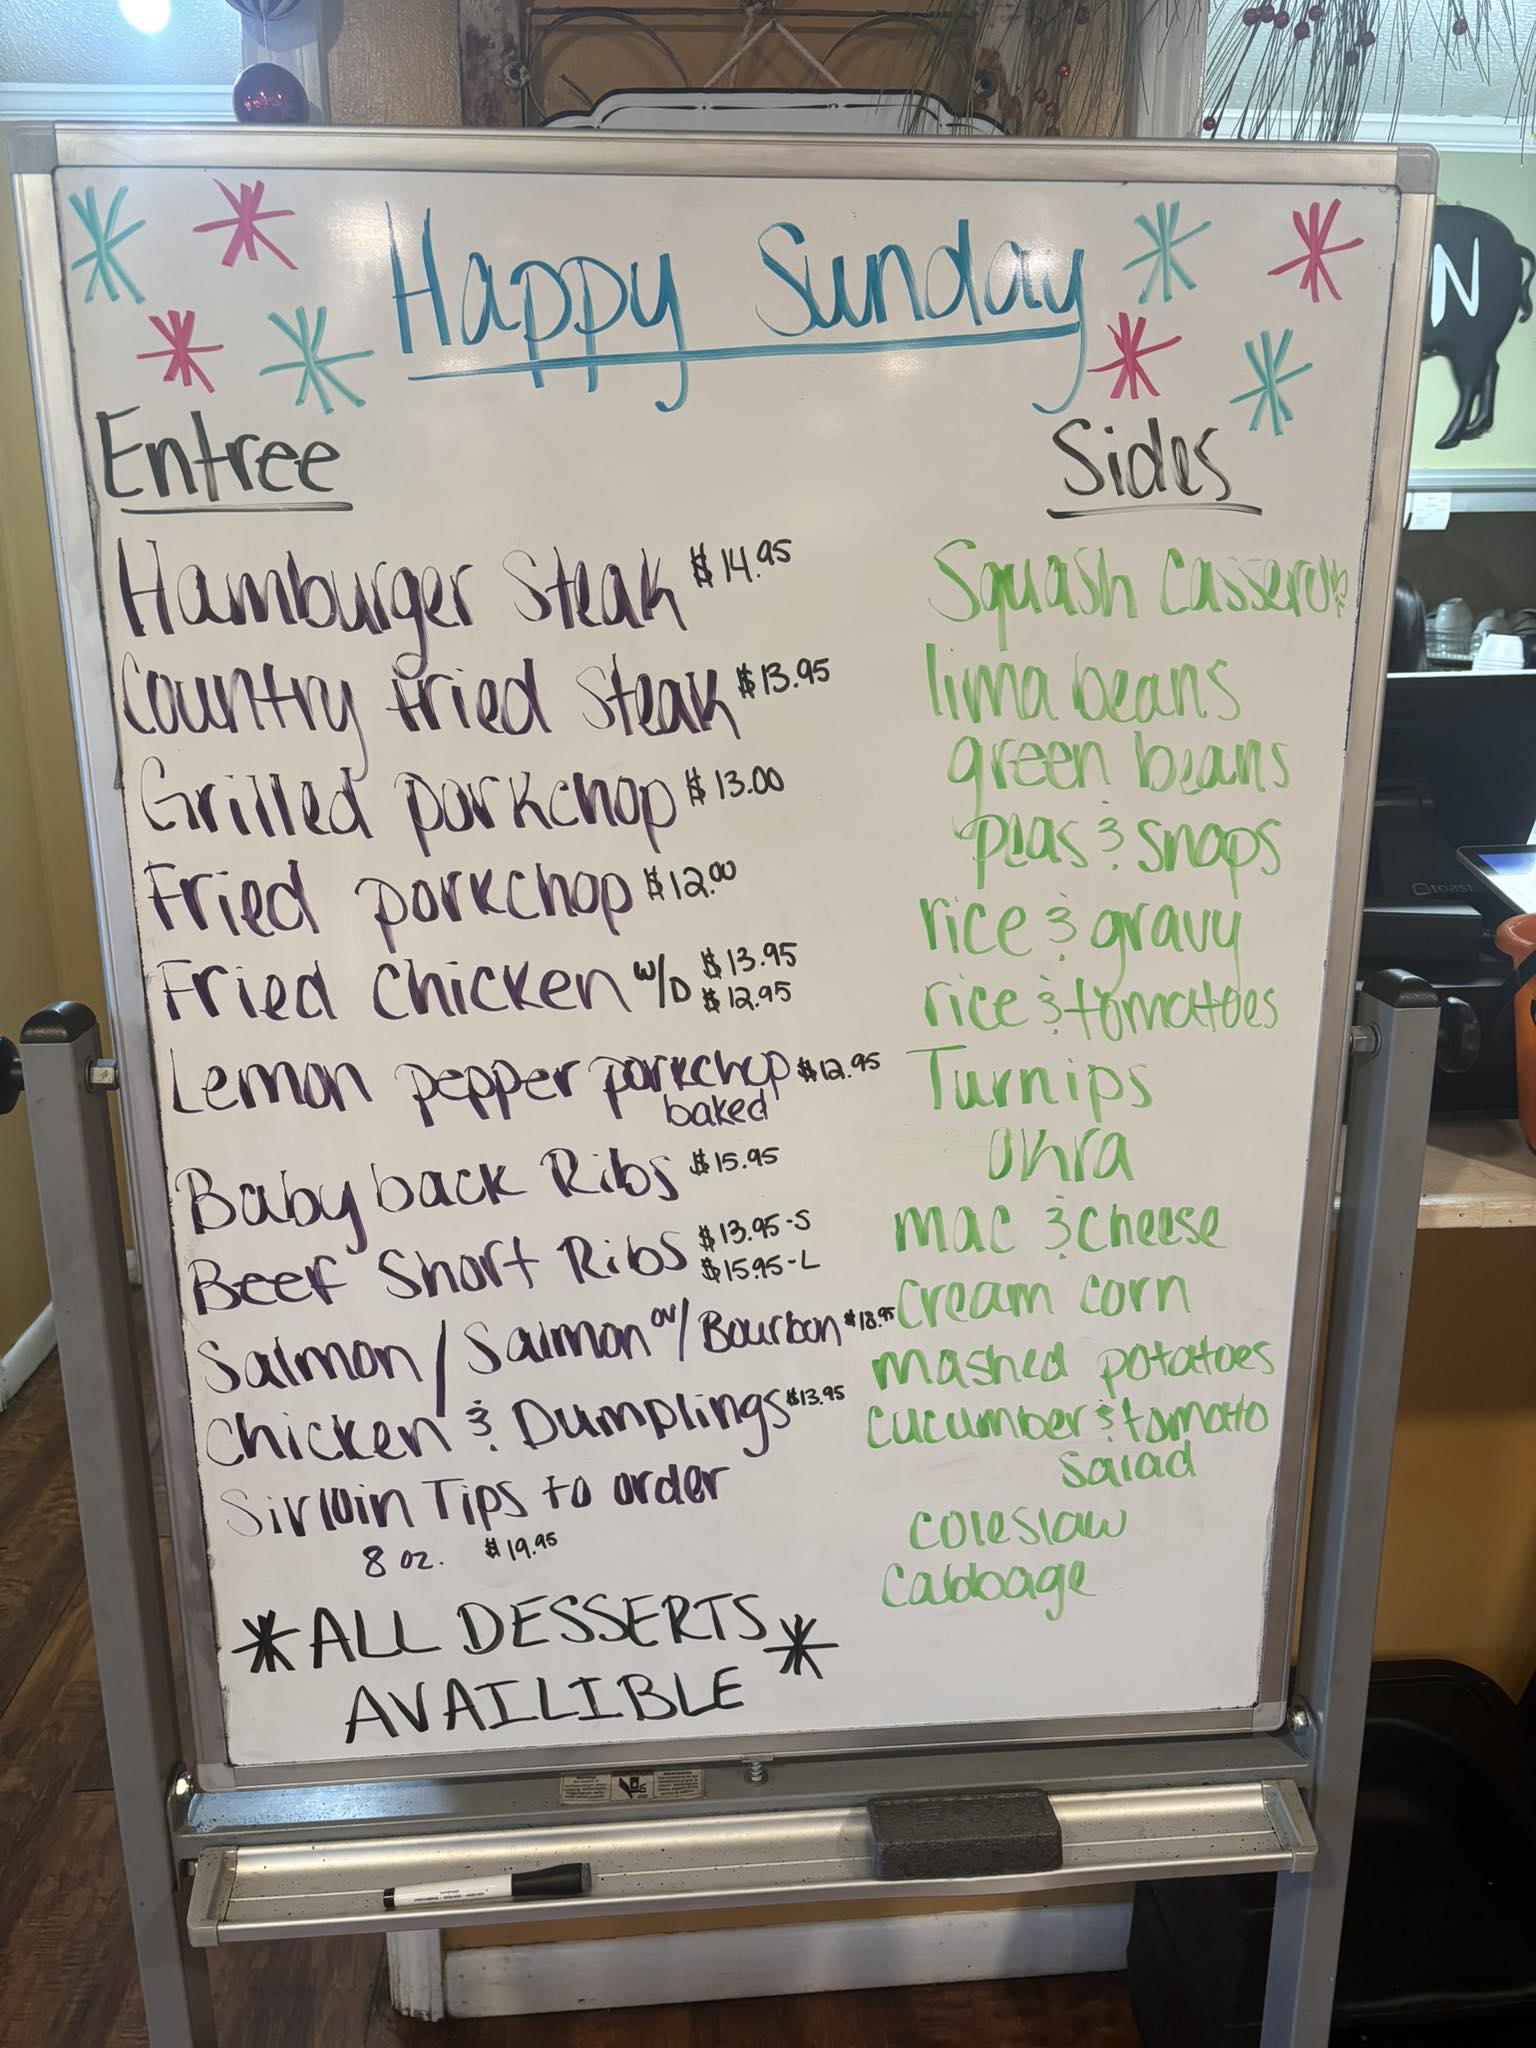 Happy Sunday
Entree
Hamburger Steak $14.95
Country Fried Steak $13.95
Grilled porkchop $13.00
Fried porkchop $12.00
Fried chicken w/D $13.95
$12.95
Lemon pepper porkchop $12.95
baked
Baby back Ribs $15.95
Beef Short Ribs $13.95-S
$15.95-L
Salmon/Salmon w/Bourbon $18.95
Chicken & Dumplings $13.95
Sirloin Tips to order
8 oz. $19.95
*ALL DESSERTS*
AVAILIBLE
Sides
Squash Casserole
lima beans
green beans
peas & snaps
rice & gravy
rice & tomatoes
Turnips
okra
mac & cheese
cream corn
mashed potatoes
cucumber & tomato
salad
coleslaw
cabbage
N
toast